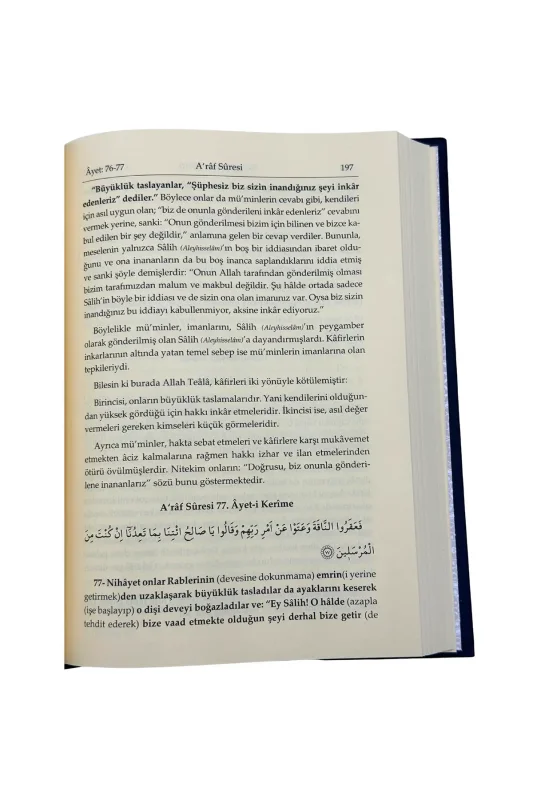 Âyet: 76-77 A'râf Sûresi 197
"Büyüklük taslayanlar, "Şüphesiz biz sizin inandığınız şeyi inkâr
edenleriz" dediler." Böylece onlar da mü'minlerin cevabı gibi, kendileri
için asıl uygun olan; "biz de onunla gönderileni inkâr edenleriz" cevabını
vermek yerine, sanki: "Onun gönderilmesi bizim için bilinen ve bizce ka-
bul edilen bir şey değildir," anlamına gelen bir cevap verdiler. Bununla,
meselenin yalnızca Sâlih (Aleyhisselâm)'ın boş bir iddiasından ibaret oldu-
ğunu ve ona inananların da bu boş inanca saplandıklarını iddia etmiş
ve sanki şöyle demişlerdir: "Onun Allah tarafından gönderilmiş olması
bizim tarafımızdan malum ve makbul değildir. Şu hâlde ortada sadece
Sâlih'in böyle bir iddiası ve de sizin ona olan imanınız var. Oysa biz sizin
inandığınız bu iddiayı kabullenmiyor, aksine inkâr ediyoruz."
Böylelikle mü'minler, imanlarını, Sâlih (Aleyhisselâm)'ın peygamber
olarak gönderilmiş olan Sâlih (Aleyhisselâm)'a dayandırmışlardı. Kâfirlerin
inkarlarının altında yatan temel sebep ise mü'minlerin imanlarına olan
tepkileriydi.
Bilesin ki burada Allah Teâlâ, kâfirleri iki yönüyle kötülemiştir:
Birincisi, onların büyüklük taslamalarıdır. Yani kendilerini olduğun-
dan yüksek gördüğü için hakkı inkâr etmeleridir. İkincisi ise, asıl değer
vermeleri gereken kimseleri küçük görmeleridir.
Ayrıca mü'minler, hakta sebat etmeleri ve kâfirlere karşı mukâvemet
etmekten âciz kalmalarına rağmen hakkı izhar ve ilan etmelerinden
ötürü övülmüşlerdir. Nitekim onların: "Doğrusu, biz onunla gönderi-
lene inananlarız" sözü bunu göstermektedir.
A'râf Sûresi 77. Âyet-i Kerîme
فَعَقَرُوا النَّاقَةَ وَعَتَوْا عَنْ اَمْرِ رَبِّهِمْ وَقَالُوا يَا صَالِحُ ائْتِنَا بِمَا تَعِدُنَا اِنْ كُنْتَ مِنَ
الْمُرْسَلِينَ ﴿٧٧﴾
77- Nihâyet onlar Rablerinin (devesine dokunmama) emrin(i yerine
getirmek)den uzaklaşarak büyüklük tasladılar da ayaklarını keserek
(işe başlayıp) o dişi deveyi boğazladılar ve: "Ey Sâlih! O hâlde (azapla
tehdit ederek) bize vaad etmekte olduğun şeyi derhal bize getir (de